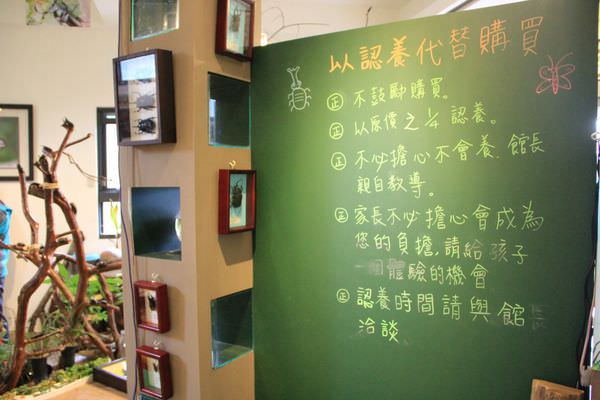 以認養代替購買
㊣ 不鼓勵購買。
㊣ 以原價之1/4認養。
㊣ 不必擔心不會養.館長
親自教導。
㊣ 家長不必擔心會成為
您的負擔,請給孩子
一個體驗的機會
㊣ 認養時間請與館長
洽談